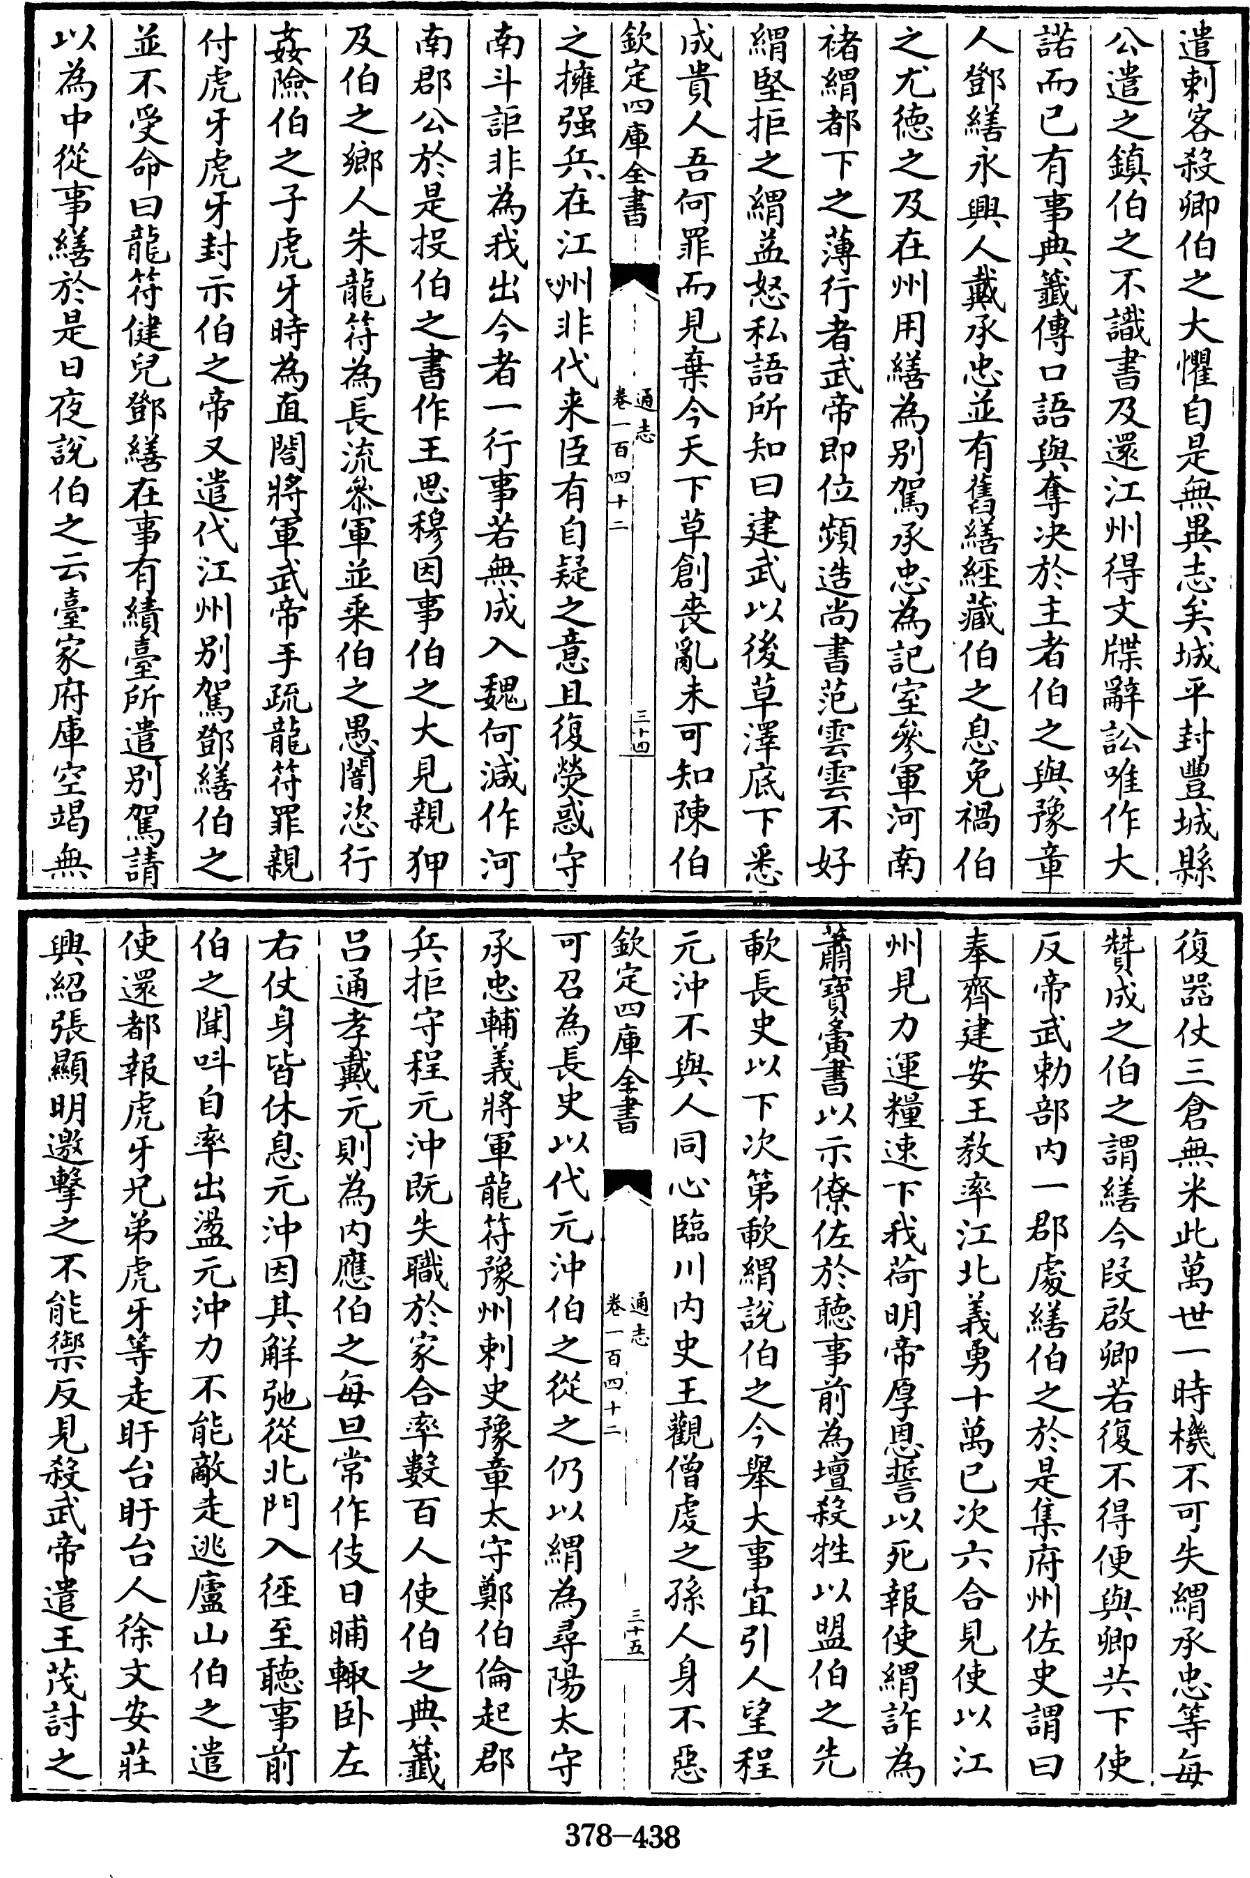 遣刺客殺卿伯之大懼自是無異志矣城平封豐城縣
公遣之鎮伯之不識書及還江州得文牒辭訟唯作大
諾而已有事典籖傳口語與奪決於主者伯之與豫章
人鄧繕永興人戴承忠並有舊繕經藏伯之息免禍伯
之尤德之及在州用繕為别駕承忠為記室參軍河南
褚緭都下之薄行者武帝即位頻造尚書范雲雲不好
緭堅拒之緭益怒私語所知曰建武以後草澤底下悉
成貴人吾何罪而見棄今天下草創喪亂未可知陳伯
欽定四庫全書
通志
卷一百四十二
三十四
之擁强兵在江州非代來臣有自疑之意且復熒惑守
南斗詎非為我出今者一行事若無成入魏何減作河
南郡公於是投伯之書作王思穆因事伯之大見親狎
及伯之鄉人朱龍符為長流叅軍並乘伯之愚闇恣行
姦險伯之子虎牙時為直閤將軍武帝手疏龍符罪親
付虎牙虎牙封示伯之帝又遣代江州别駕鄧繕伯之
並不受命曰龍符健兒鄧繕在事有績臺所遣别駕請
以為中從事繕於是日夜說伯之云臺家府庫空竭無
復器仗三倉無米此萬世一時機不可失緭承忠等每
贊成之伯之謂繕今段啟卿若復不得便與卿共下使
反帝武勅部内一郡處繕伯之於是集府州佐史謂曰
奉齊建安王教率江北義勇十萬已次六合見使以江
州見力運糧速下我荷明帝厚恩誓以死報使緭詐為
蕭寶夤書以示僚佐於聽事前為壇殺牲以盟伯之先
歃長史以下次第歃緭說伯之今舉大事宜引人望程
元沖不與人同心臨川内史王觀僧虔之孫人身不惡
欽定四庫全書
通志
卷一百四十二
三十五
可召為長史以代元沖伯之從之仍以緭為尋陽太守
承忠輔義將軍龍符豫州刺史豫章太守鄭伯倫起郡
兵拒守程元沖既失職於家合率數百人使伯之典籖
吕通孝戴元則為内應伯之每旦常作伎日晡輙卧左
右仗身皆休息元沖因其解弛從北門入徑至聽事前
伯之聞叫自率出盪元沖力不能敵走逃廬山伯之遣
使還都報虎牙兄弟虎牙等走盱台盱台人徐文安莊
興紹張顯明邀擊之不能禦反見殺武帝遣王茂討之
378-438